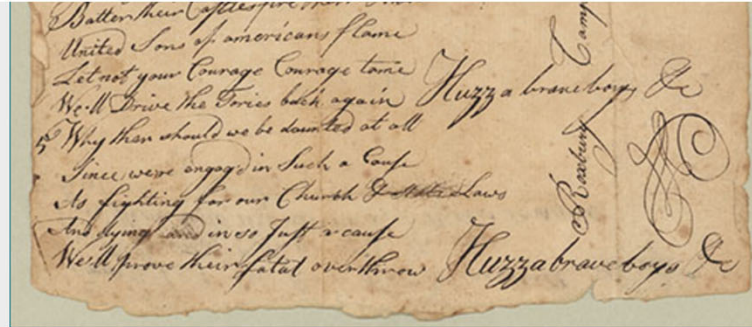 Batter their Castles fire their
United Sons of americans flame
Let not your Courage Courage tame
We'll Drive the Tories back again Huzza brave boys &c
5 Why then should we be daunted at all
Since we're engag'd in Such a Cause
As fighting for our Church & State Laws
And dying and in so Just a cause
We'll prove their fatal overthrow Huzza brave boys &c
Roxbury Camp